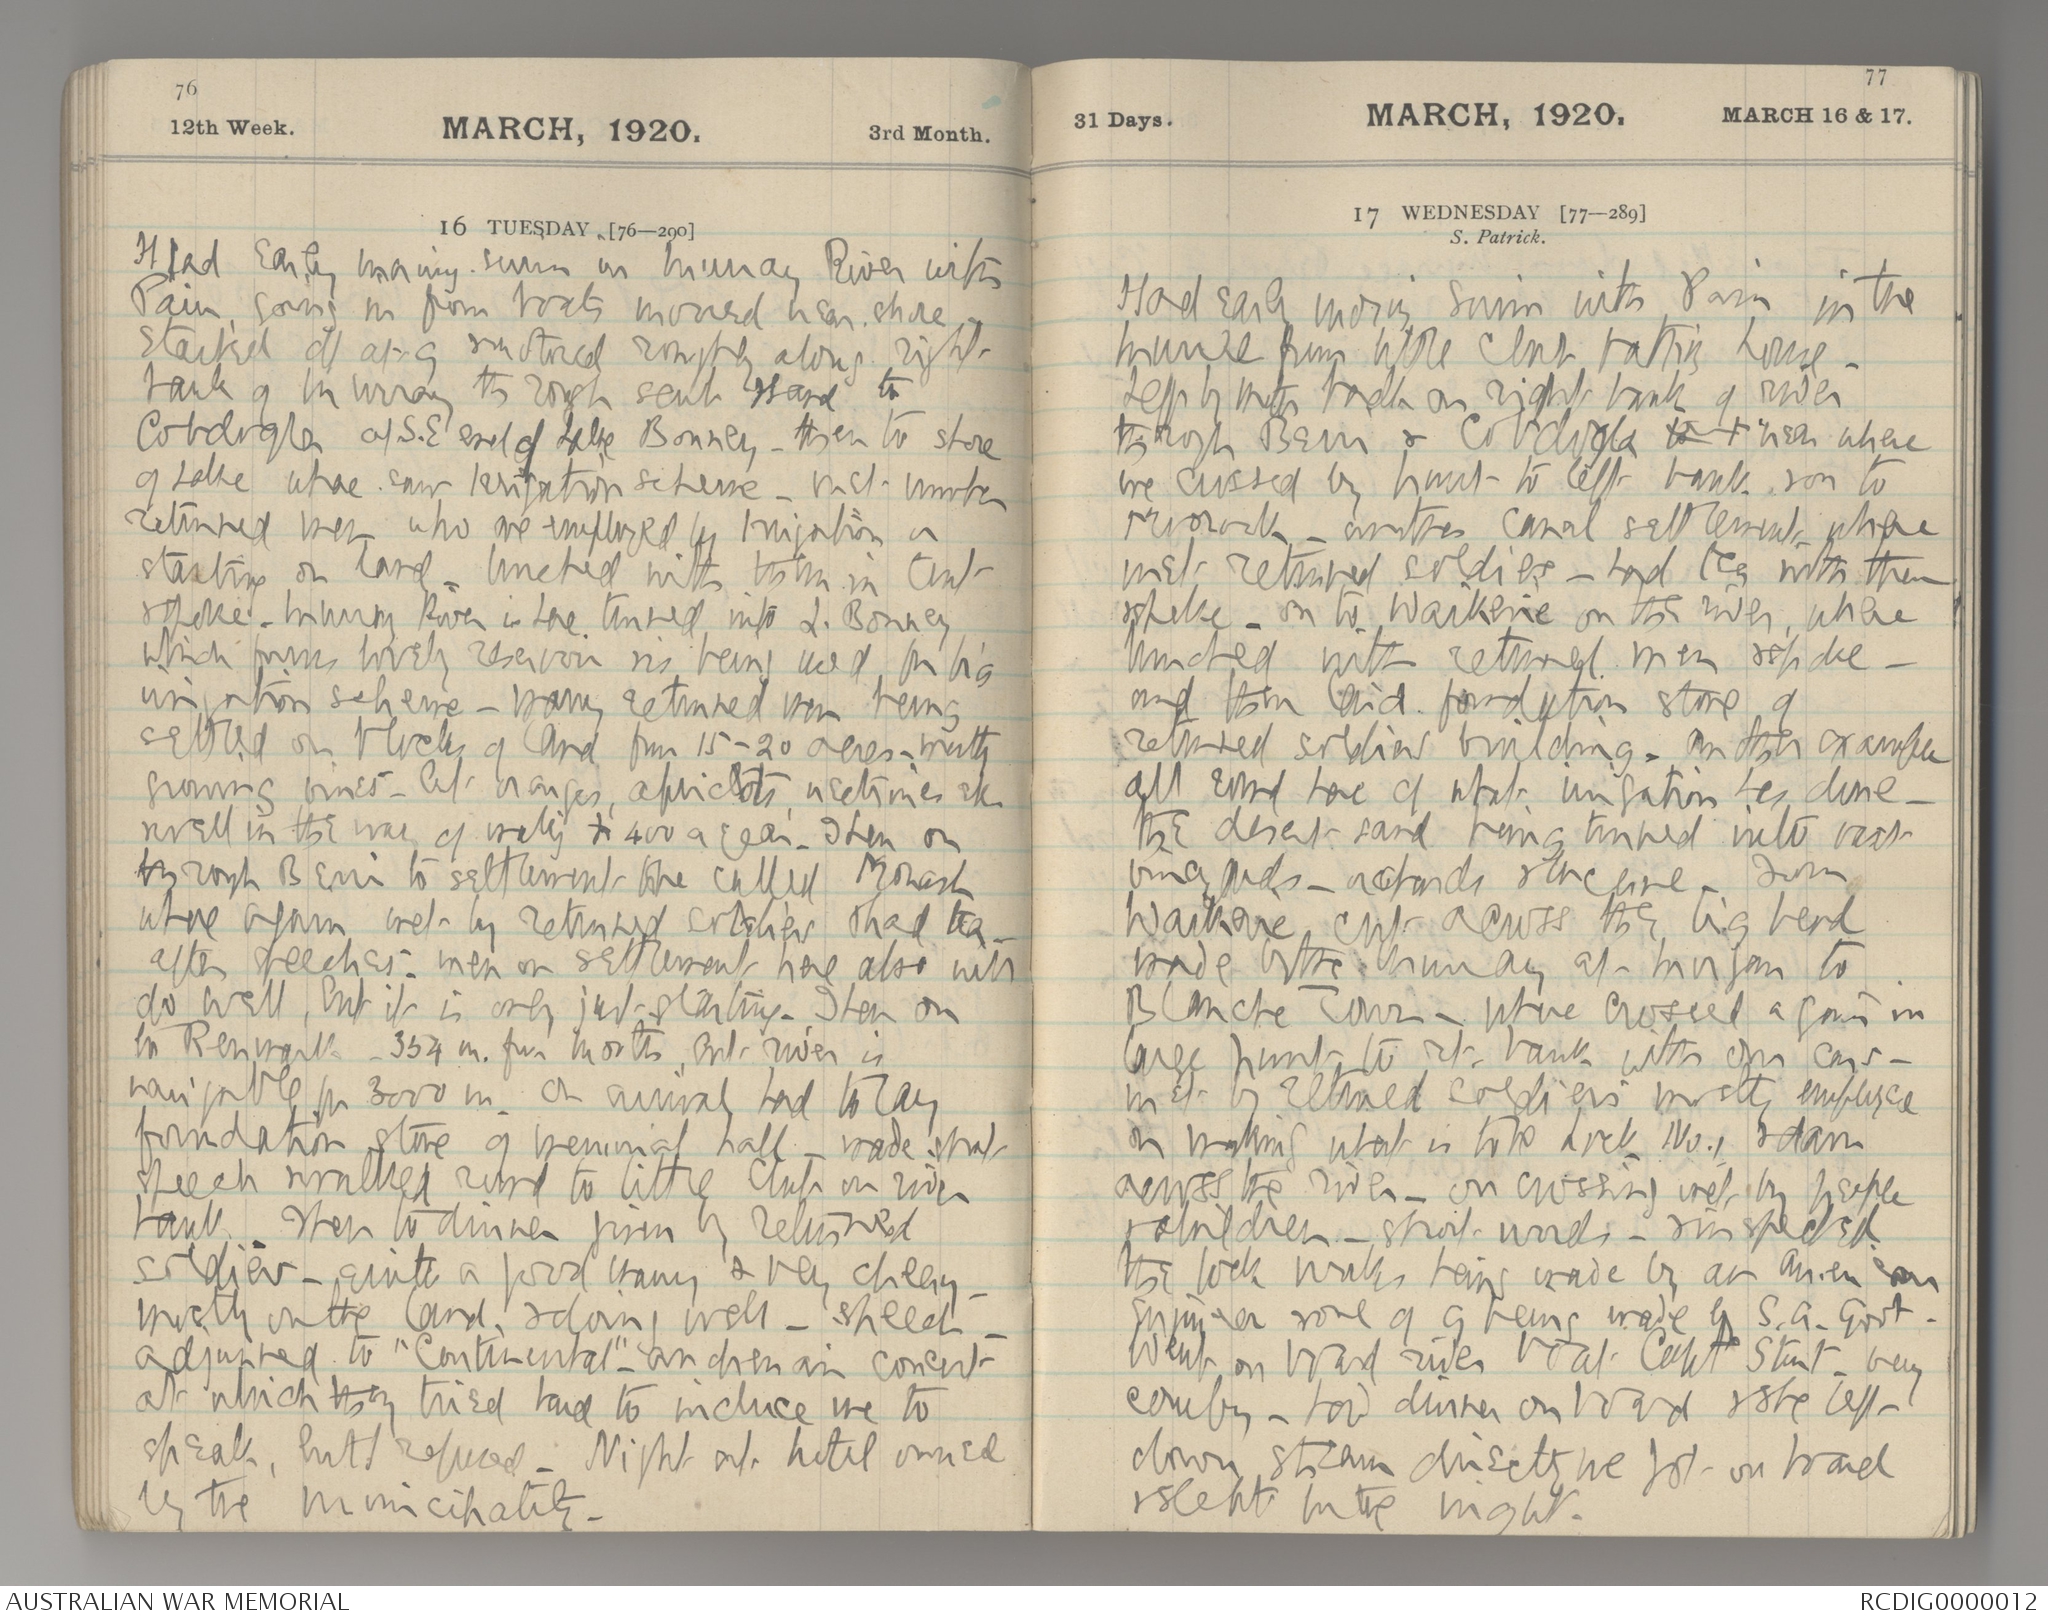 76
12th Week.
MARCH, 1920.
3rd Month.
16 TUESDAY [76—290]
Had early morning swim in Murray River with
Pain, going in from boats moored near shore -
started off at 9 & motored roughly along right
bank of Murray through scrub & sand to
Cobdogla at S.E end of Lake Bonney - then to shore
of Lake where saw irrigation scheme - met number
returned men who are employed by Irrigation or
starting on land - lunched with them in tent
& spoke - Murray River is here turned into L. Bonney
which forms lovely reservoir & is being used for big
irrigation scheme - many returned men being
settled on blocks of land from 15-20 acres - mostly
growing vines - but oranges, apricots, nectrines etc
& well in the way of making £400 a year. Then on
through Berri to settlement here called Monash
where again met by returned soldiers & had tea -
after speeches - men on settlement here also will
do well, but it is only just starting. Then on
to Renmark - 354 m. from mouth but river is
navigable for 3000 m. On arrival had to lay
foundation stone of memorial hall - made short
speech & walked round to little Club on river
bank - Then to dinner given by returned
soldiers - quite a good many & very cheery -
mostly on the land & doing well - speech -
adjurned to "Continental" - an open air concert
at which they tried hard to induce me to
speak, but I refused - Night at hotel owned
by the municipality -
77
31 Days.
MARCH, 1920.
MARCH 16 & 17.
17 WEDNESDAY [77—289]
S. Patrick.
Had early mornig swim with Pain in the
Murray from little Club bathing house -
Left by motor back on right bank of river
through Berri & Cobdogla to + near where
we crossed by punt to left bank & on to
- another canal settlement where
met returned soldiers - had tea with them
& spoke - on to Waikerie on the river, where
lunched with returned men & spoke -
and then laid foundation stone of
returned soldiers building - another example
all round here of what irrigation has done -
the desert sand being turned into vast
vineyards - orchards & . From
Waikerie cut across the big bend
made by the Murray at Morgan to
Blanche Town - where crossed again in
large punt to rt. bank with our cars -
met by returned soldiers mostly employed
on making what is to be Lock No. 1 & dam
across the river - on crossing met by people
& children - short words - & inspected
the lock works being made by an American
Engineer & one of 9 being made by S.A. Govt -
Went on board river boat Capt Sturt - very
comfy - had dinner on board & she left
down stream directly we got on board
& slept in the night.
AUSTRALIAN WAR MEMORIAL
RCDIG0000012